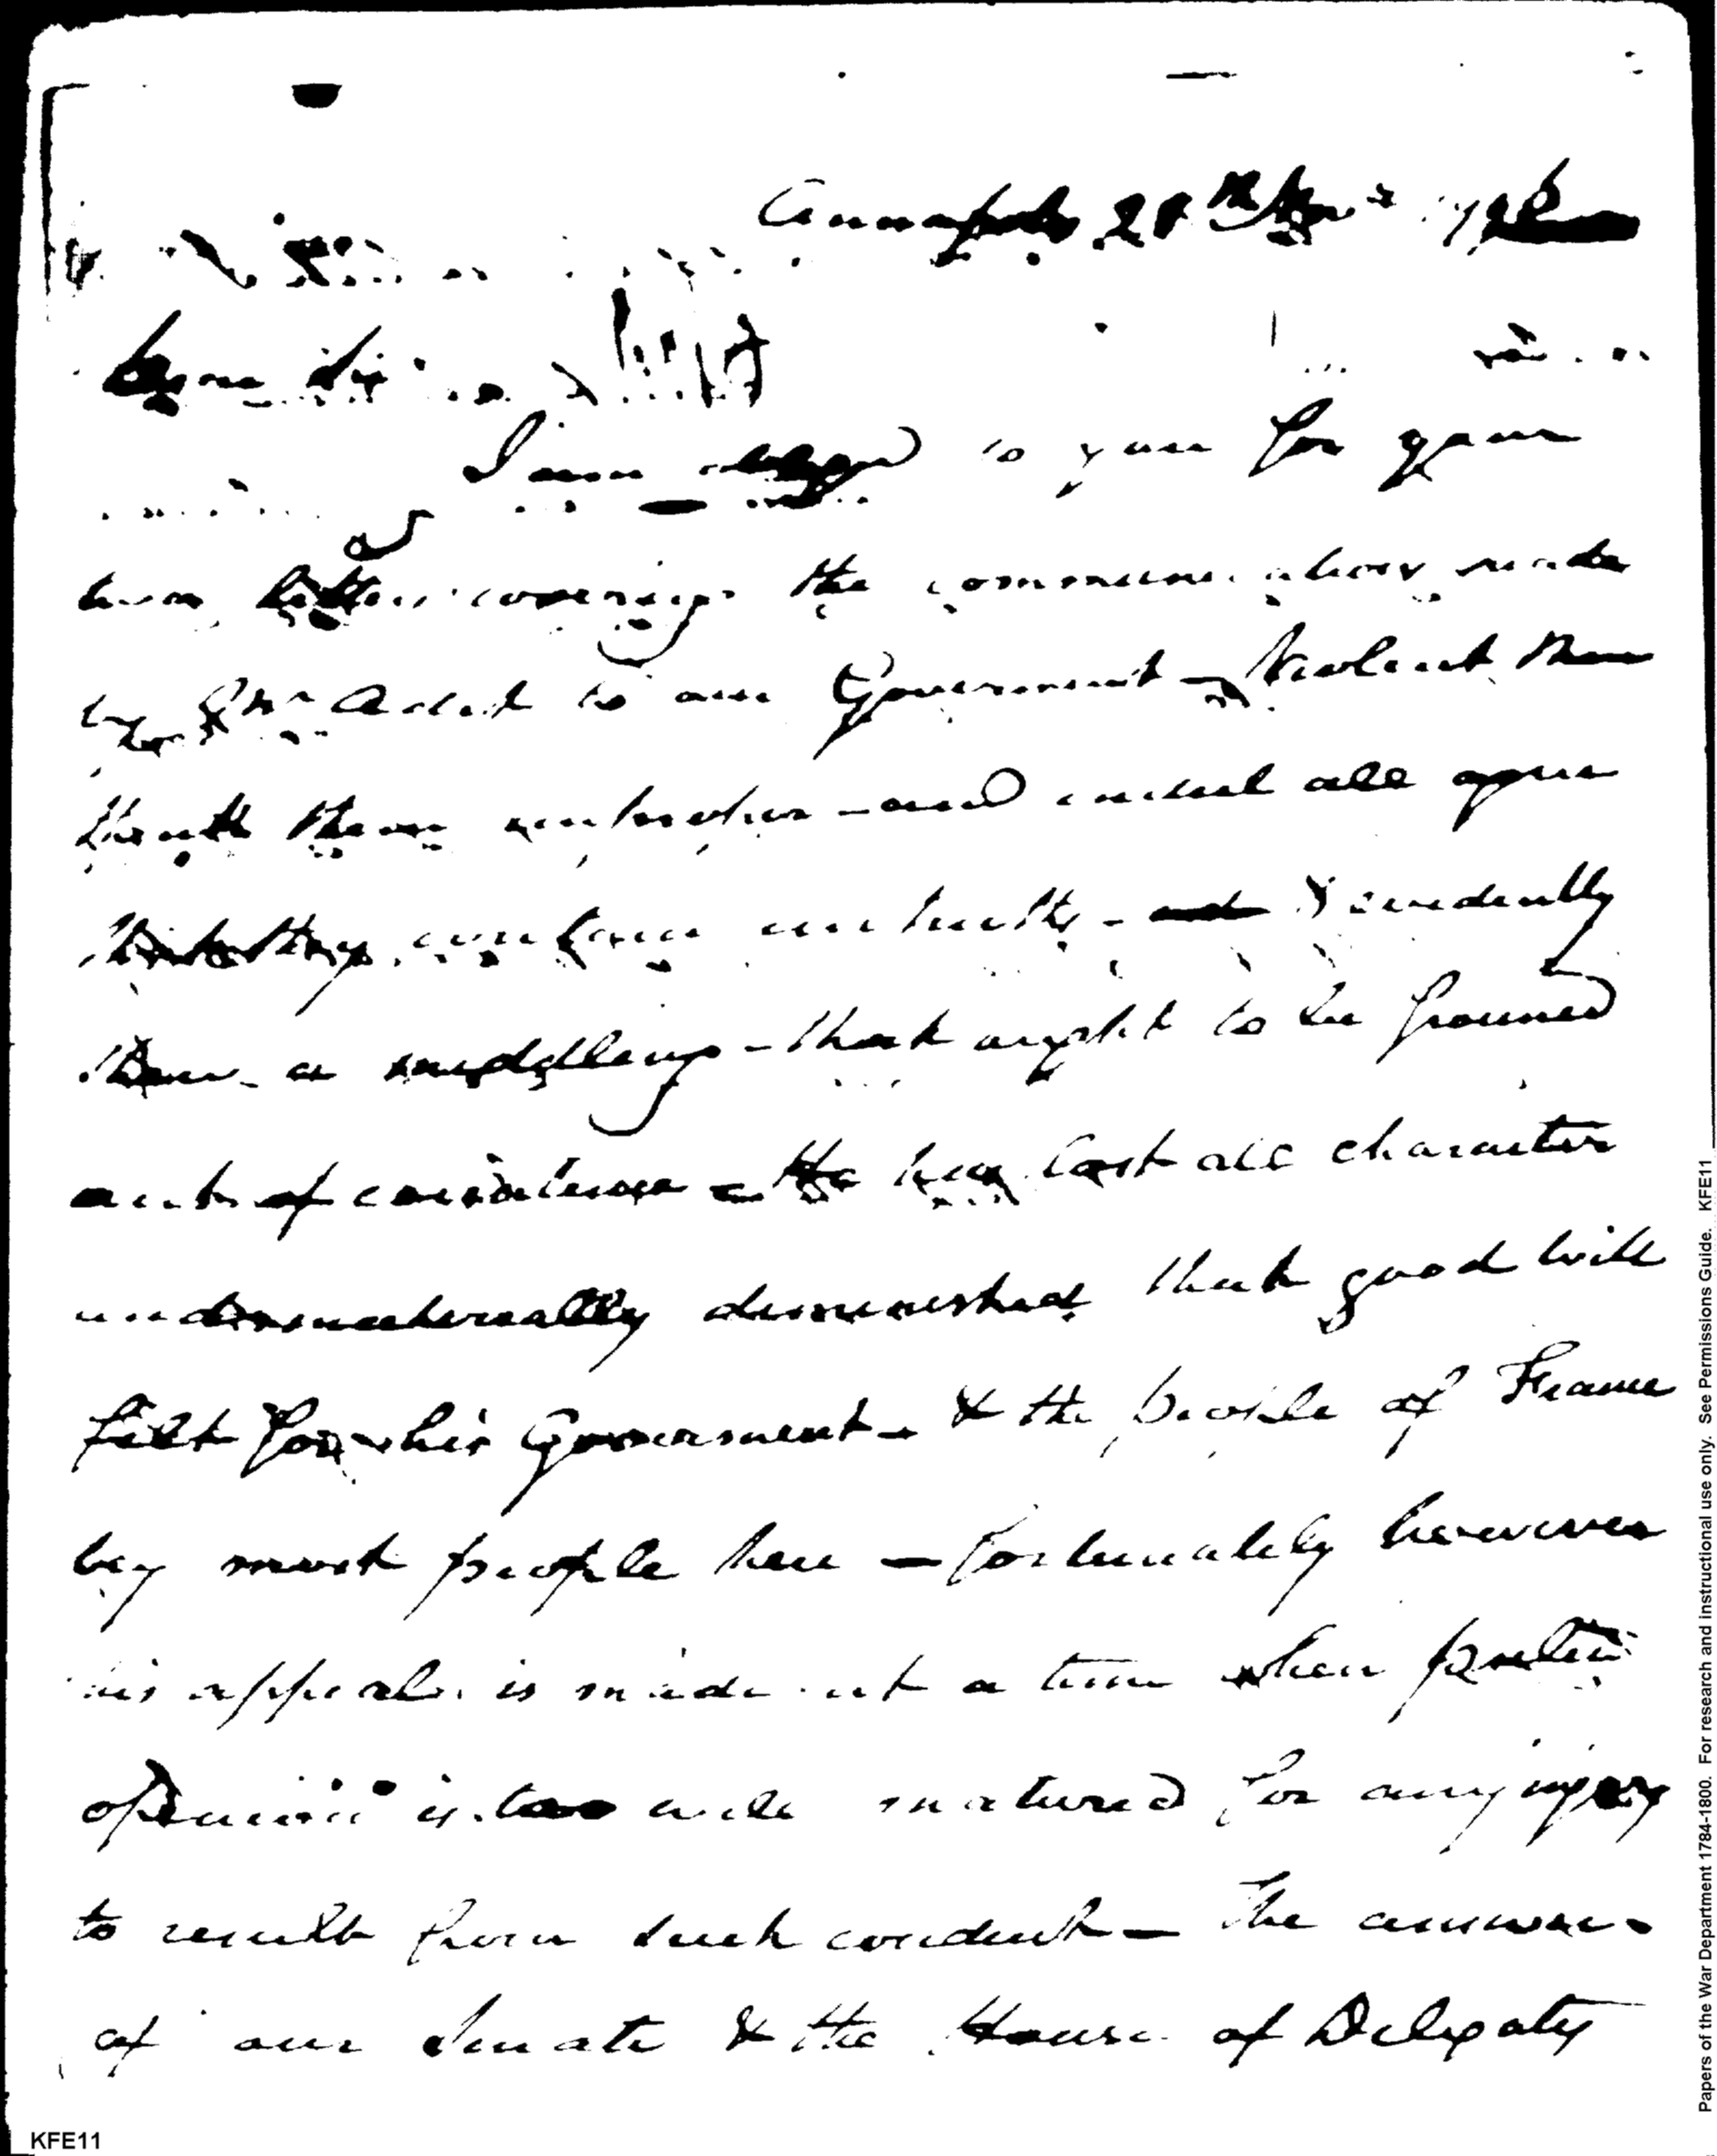 Annapolis 28th Nov 1796
Dear Sir
I am obliged to you for your
two letters covering the communications made
by Mr Adet to our Government - Violent Men
think them and indeed all your
evidently
a medling - that ought to be frowned
out of countenance - He has lost all character
and materially diminished that good will
felt for his Government - & the people of France
by most people here - fortunately however
his appeal is made at a time when public
opinion is too well matured for any injury
to result from such conduct - The answer
of our Senate & the House of Delegates
Papers of the War Department 1784-1800. For research and instructional use only. See Permissions Guide. KFE11
KFE11